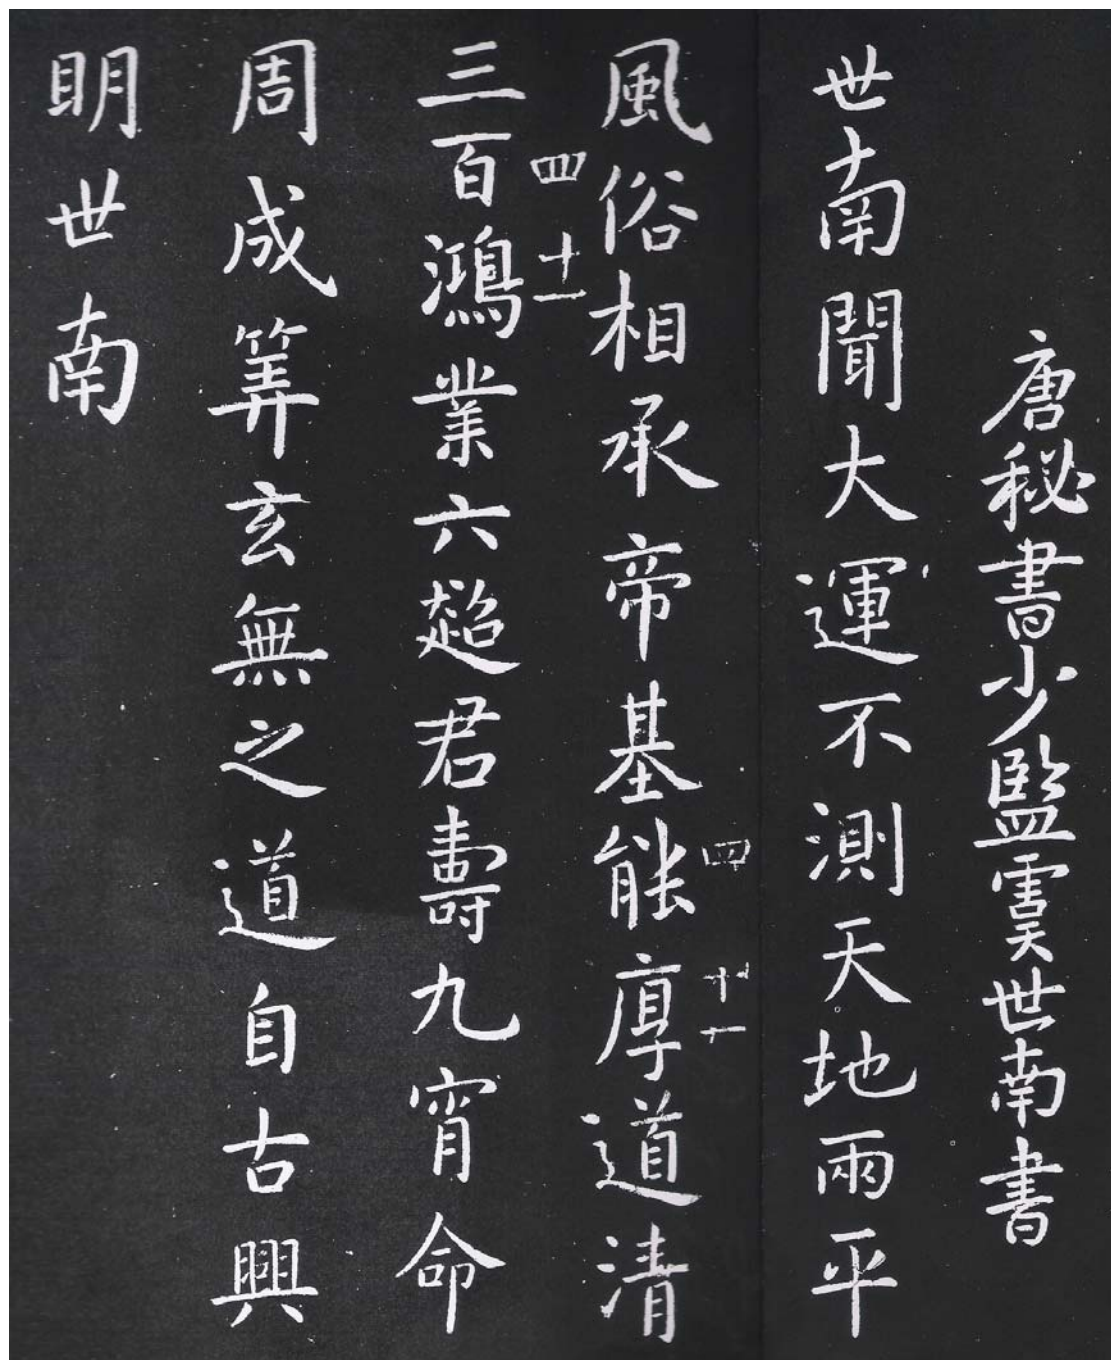 唐秘書少監虞世南書
世南聞大運不測天地兩平
風俗相承帝基能厚道清
四 十一
三百鴻業六超君壽九宵命
四 十一
周成筭玄無之道自古興
明世南